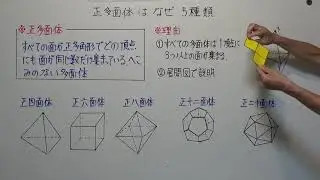 正多面体はなぜ5種類
※正多面体
すべての面が正多角形でどの頂点
にも面が同じ数だけ集まっている、へこ
みのない多面体
※理由
①すべての多面体は1頂点に
3つ以上の面が集まる。
②展開図で説明
正四面体 正六面体 正八面体 正十二面体 正二十面体